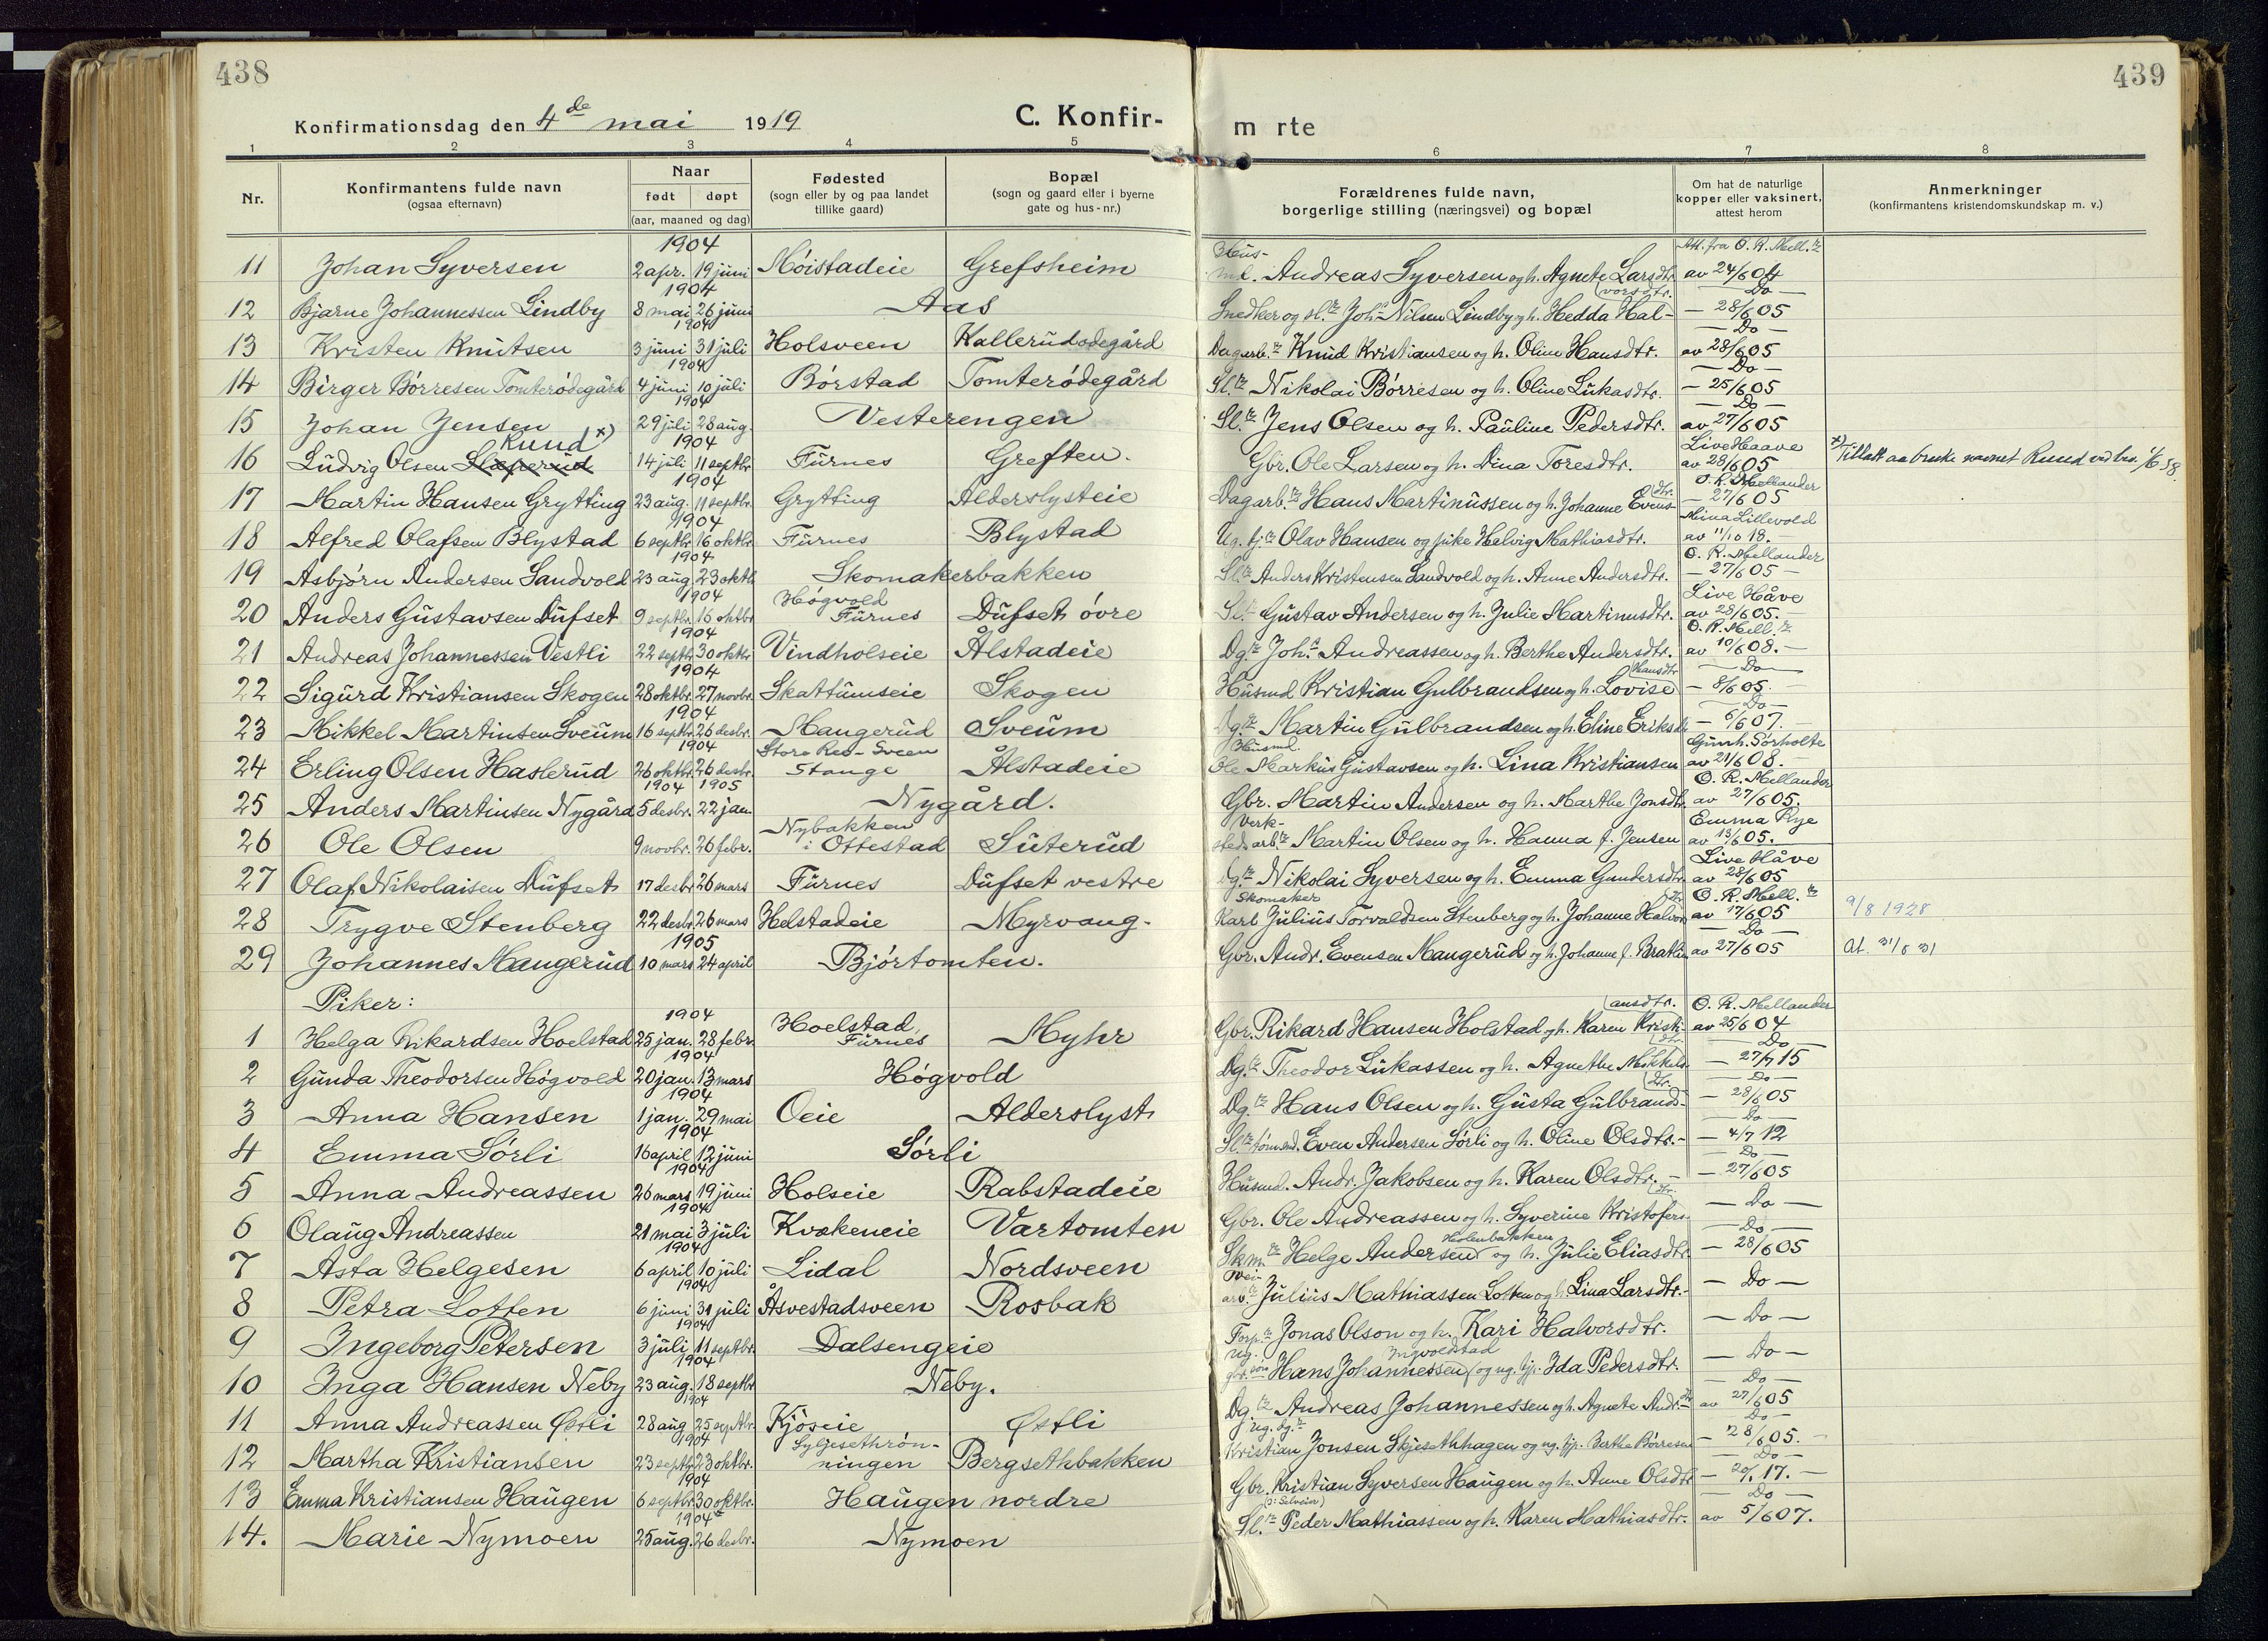 438
439
Konfirmationsdag den 4de mai 1919
C. Konfir-
m rte
1 2 3 4 5 6 7 8
Nr.
Konfirmantens fulde navn
(ogsaa efternavn)
Naar
født døpt
(aar, maaned og dag)
Fødested
(sogn eller by og paa landet
tillike gaard)
Bopæl
(sogn og gaard eller i byerne
gate og hus-nr.)
Forældrenes fulde navn,
borgerlige stilling (næringsvei) og bopæl
Om hat de naturlige
kopper eller vaksinert,
attest herom
Anmerkninger
(konfirmantens kristendomskundskap m. v.)
1904 Hus- Att. fra O. R. Mell.
11 Johan Syversen 2 apr. 19 juni Móistadeie Grefsheim Andreas Syversen og h. Agnete Larsdtr. av 24/6 04
1904 vorsdtr. Do
12 Bjarne Johannessen Lindby 8 mai 26 juni Aas Snedker og Joh. Nilsen Lindby og h. Hedda Hal- 28/6 05
1904 Do
13 Kristen Knutsen 3 juni 31 juli Holsveen Kallerudødegård Dagarb. Knud Kristiansen og h. Oline Hansdtr. av 28/6 05
1904 Do
14 Birger Børresen Tomterødegård 4 juni 10 juli Bórstad Tomterødegård Nikolai Børresen og h. Oline Lukasdtr. 25/6 05
1904 Do
15 Johan Jensen 29 juli 28 aug. Vesterengen Jens Olsen og h. Pauline Pedersdtr. av 27/6 05
Rund x) 1904 Live Haave
16 Ludvig Olsen 14 juli 11 septbr Furnes Greften. Gbr. Ole Larsen og h. Dina Toresdtr. av 28/6 05 x) Tillatt aa bruke navnet Rund ved
1904 dtr. O. R. Mellander
17 Martin Hansen Grytting 23 aug. 11 septbr. Grytting Alderslysteie Dagarb. Hans Martinussen og h. Johanne Evens- 27/6 05
1904 Mina Lillevold
18 Alfred Olafsen Blystad 6 septbr. 16 oktbr. Furnes Blystad Olav Hansen og pike Helvig Mathiasdtr. av 11/10 18.
1904 O. R. Mellander
19 Asbjørn Andersen Sandvold 23 aug. 23 oktb. Skomakerbakken Anders Kristensen Sandvold og h. Anne Andersdtr. 27/6 05
1904 Høgvold Live Håve
20 Anders Gustavsen Dufset 9 septbr. 16 oktbr Furnes Dufset øvre Gustav Andersen og h. Julie Martinusdtr. av 28/6 05.
1904 O. R. Mell.
21 Andreas Johannessen Vestli 22 septbr 30 oktbr Vindholseie Ålstadeie Joh. Andreassen og h. Berthe Andersdtr. av 10/6 08.
1904 Hansdtr Do
22 Sigurd Kristiansen Skogen 28 oktbr. 27 novbr. Skattumseie Skogen Husmd Kristian Gulbrandsen og h. Lovise 8/6 05.
1904 Do
23 Mikkel Martinsen Sveum 16 septbr. 26 desbr. Mangerud Sveum Martin Gulbrandsen og h. Eline Eriksdr 5/6 07.
1904 Store Ree-Sveen Husmd. Gunh. Sørholte
24 Erling Olsen Haslerud 26 oktbr. 26 desbr. Stange Ålstadeie Ole Markus Gustavsen og h. Lina Kristiansen av 21/6 08.
1904 1905 O. R. Mellander
25 Anders Martinsen Nygård 5 desbr. 22 jan Nygård. Gbr. Martin Andersen og h. Marthe Jonsdtr. av 27/6 05.
Nybakken Verk- Emma Rye
26 Ole Olsen 9 novbr. 26 febr. i Ottestad Suterud stedsarb. Martin Olsen og h. Hanna f. Jensen av 13/6 05.
Live Håve
27 Olaf Nikolaisen Dufset 17 desbr 26 mars Furnes Dufset vestre Nikolai Syversen og h. Emma Gundersdtr av 28/6 05
Skomaker O. R. Mell.
28 Trygve Stenberg 22 desbr. 26 mars Helstadeie Myrvang. Karl Julius Torvaldsen Stenberg og h. Johanne Halvors av 17/6 05 9/8 1928
1905 Do
29 Johannes Mangerud 10 mars 24 april Bjórtomten. Gbr. Andr. Evensen Mangerud og h. Johanne f. Bratlie av 27/6 05 At. 31/8 31
Piker:
1904 Hoelstad ansdtr. O. R. Mellander
1 Helga Rikardsen Hoelstad 25 jan. 28 febr. Furnes Myhr Gbr. Rikard Hansen Holstad og h. Karen Kristi- av 25/6 04
1904 dtr. Do
2 Gunda Theodorsen Høgvold 20 jan. 13 mars Høgvold Dg. Theodor Lukassen og h. Agnethe Mikkels 27/7 15
1904 dtr. Do
3 Anna Hansen 1 jan. 29 mai Oeie Alderslyst Dg. Hans Olsen og h. Gusta Gulbrands- 28/6 05
1904 Do
4 Emma Sørli 16 april 12 juni Sørli Even Andersen Sørli og h. Oline Olsdtr. 4/7 12
1904 Do
5 Anna Andreassen 26 mars 19 juni Holseie Rabstadeie Husmd. Andr. Jakobsen og h. Karen Olsdtr. 27/6 05
1904 dtr.
6 Olaug Andreassen 21 mai 3 juli Kvækeneie Vartomten Gbr. Ole Andreassen og h. Syverine Kristofers- Do
1904 Holenbakken Do
7 Asta Helgesen 6 april 10 juli Lidal Nordsveen Skm. Helge Andersen og h. Julie Eliasdtr 28/6 05
1904 Vei-
8 Petra Lotten 6 juni 31 juli Åsvestadsveen Rosbak arb. Julius Mathiassen Lotten og h. Lina Larsdtr. Do
1904
9 Ingeborg Petersen 3 juli 11 septbr. Dalsengeie Forp. Jonas Olson og h. Kari Halvorsdtr. Do
1904 ug. Ingvoldstad
10 Inga Hansen Neby 23 aug. 18 septbr Neby. Hans Johannessen og ug. tjp. Ida Pedersdtr. Do
1904 Do
11 Anna Andreassen Østli 28 aug 25 septbr. Kjóseie Østli Dg. Andreas Johannessen og h. Agnete Andr. av 27/6 05
1904 Syljesethrøn- ug. tj. Do
12 Martha Kristiansen 23 septbr. 23 oktbr. ningen Bergsethbakken Kristian Jonsen Skjesethhagen og ug. tjp. Berthe Børresen 28/6 05.
1904 Do
13 Emma Kristiansen Haugen 6 septbr 30 oktbr. Haugen nordre Gbr. Kristian Syversen Haugen og h. Anne Olsdtr 17.
1904 (ɔ: Selveier) Do
14. Marie Nymoen 25 aug. 26 desbr. Nymoen Peder Mathiassen og h. Karen Mathiasdtr. av 5/6 07.